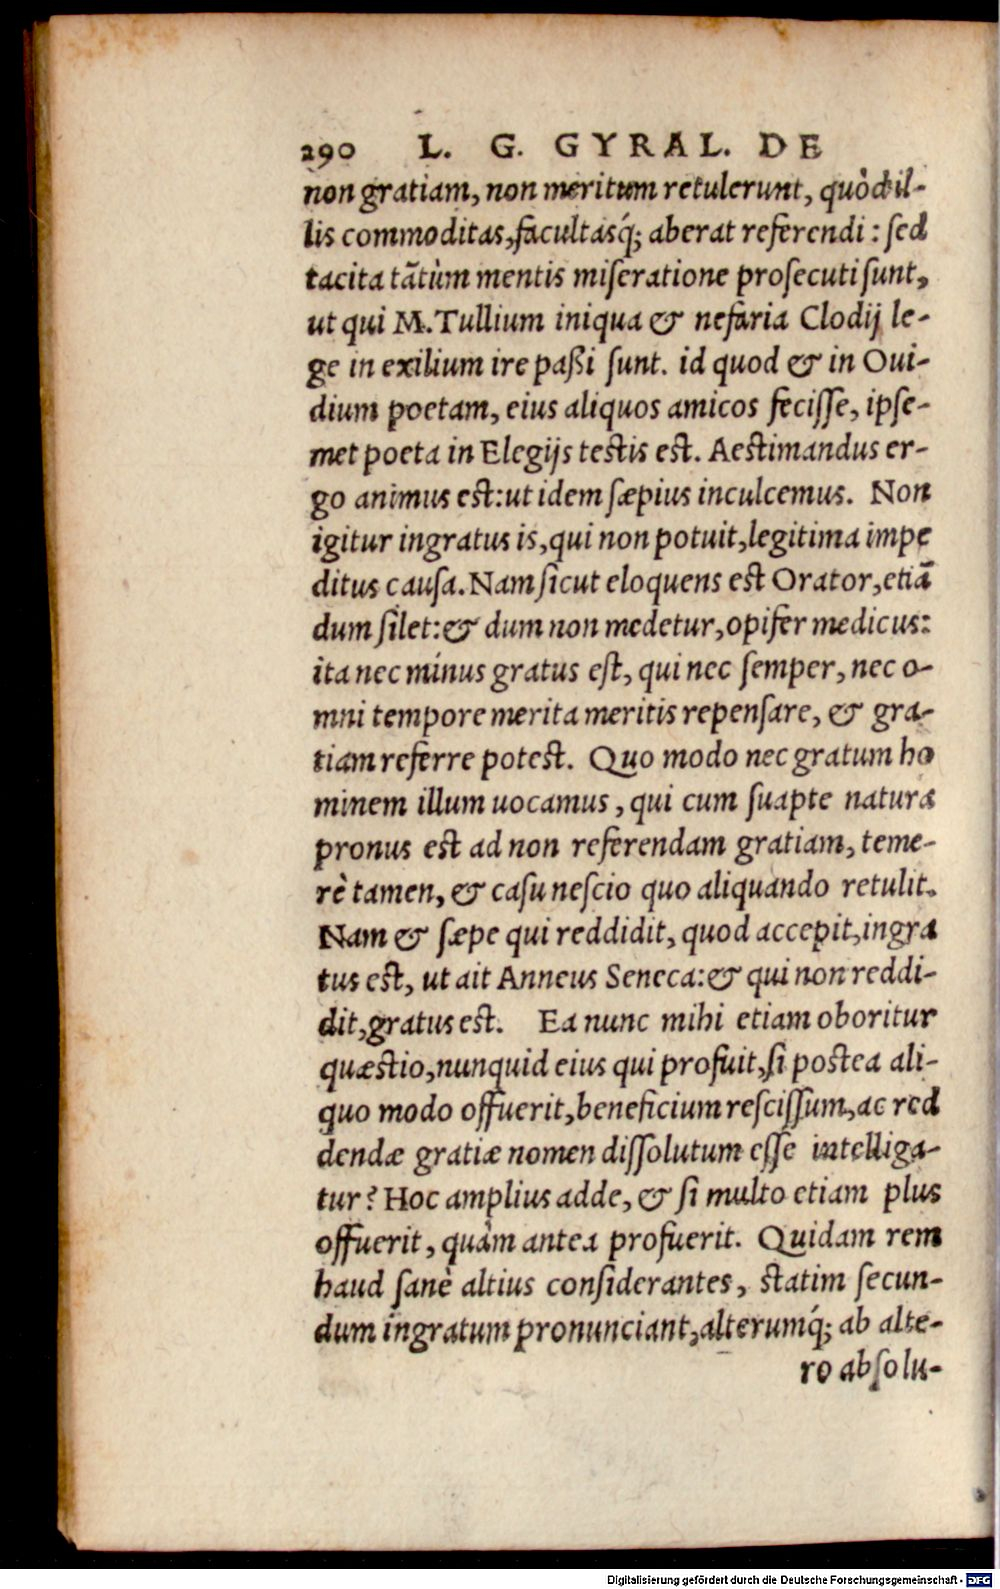 290 L. G. GYRAL. DE
non gratiam, non meritum retulerunt, quòd il-
lis commoditas, facultasq́; aberat referendi: sed
tacita tãtùm mentis miseratione prosecuti sunt,
ut qui M. Tullium iniqua & nefaria Clodij le-
ge in exilium ire paßi sunt. id quod & in Oui-
dium poetam, eius aliquos amicos fecisse, ipse-
met poeta in Elegijs testis est. Aestimandus er-
go animus est: ut idem sæpius inculcemus. Non
igitur ingratus is, qui non potuit, legitima impe
ditus causa. Nam sicut eloquens est Orator, etiã
dum silet: & dum non medetur, opifer medicus:
ita nec minus gratus est, qui nec semper, nec o-
mni tempore merita meritis repensare, & gra-
tiam referre potest. Quo modo nec gratum ho
minem illum uocamus, qui cum suapte natura
pronus est ad non referendam gratiam, teme-
rè tamen, & casu nescio quo aliquando retulit.
Nam & sæpe qui reddidit, quod accepit, ingra
tus est, ut ait Anneus Seneca: & qui non reddi-
dit, gratus est. Ea nunc mihi etiam oboritur
quæstio, nunquid eius qui profuit, si postea ali-
quo modo offuerit, beneficium rescissum, ac red
dendæ gratiæ nomen dissolutum esse intelliga-
tur? Hoc amplius adde, & si multo etiam plus
offuerit, quàm antea profuerit. Quidam rem
haud sanè altius considerantes, statim secun-
dum ingratum pronunciant, alterumq́; ab alte-
ro absolu-
Digitalisierung gefördert durch die Deutsche Forschungsgemeinschaft - DFG